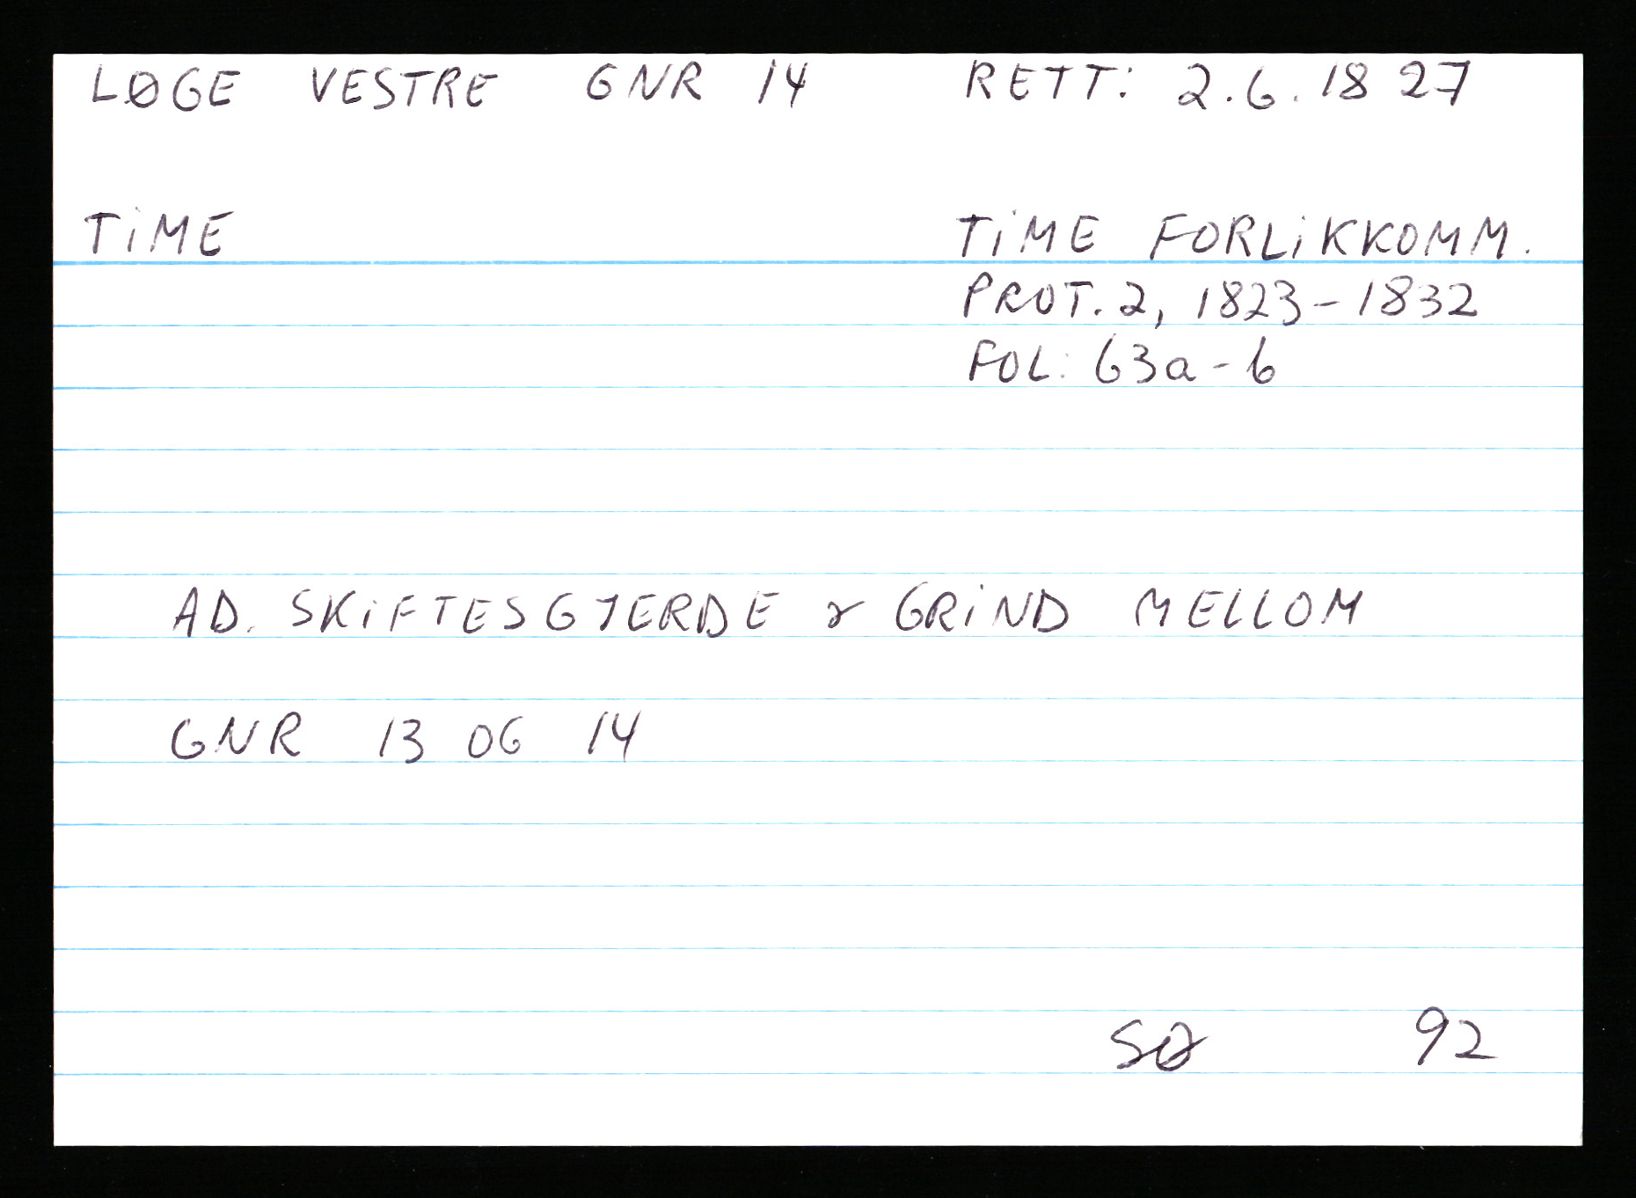 LØGE VESTRE GNR 14 RETT: 2.6.1827
TiME TiME FORLiKKOMM.
PROT. 2, 1823-1832
FOL: 63a-b
AD. SKiFTESGJERDE & GRiND MELLOM
GNR 13 OG 14
SØ 92